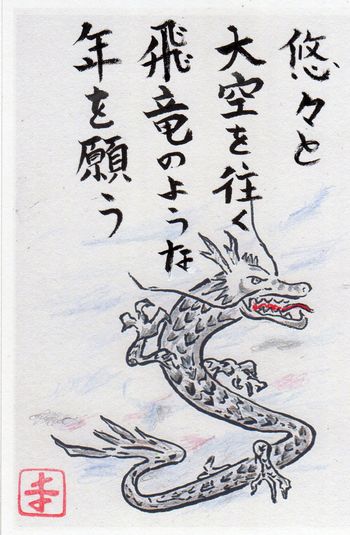 悠々と
大空を往く
飛竜のような
年を願う